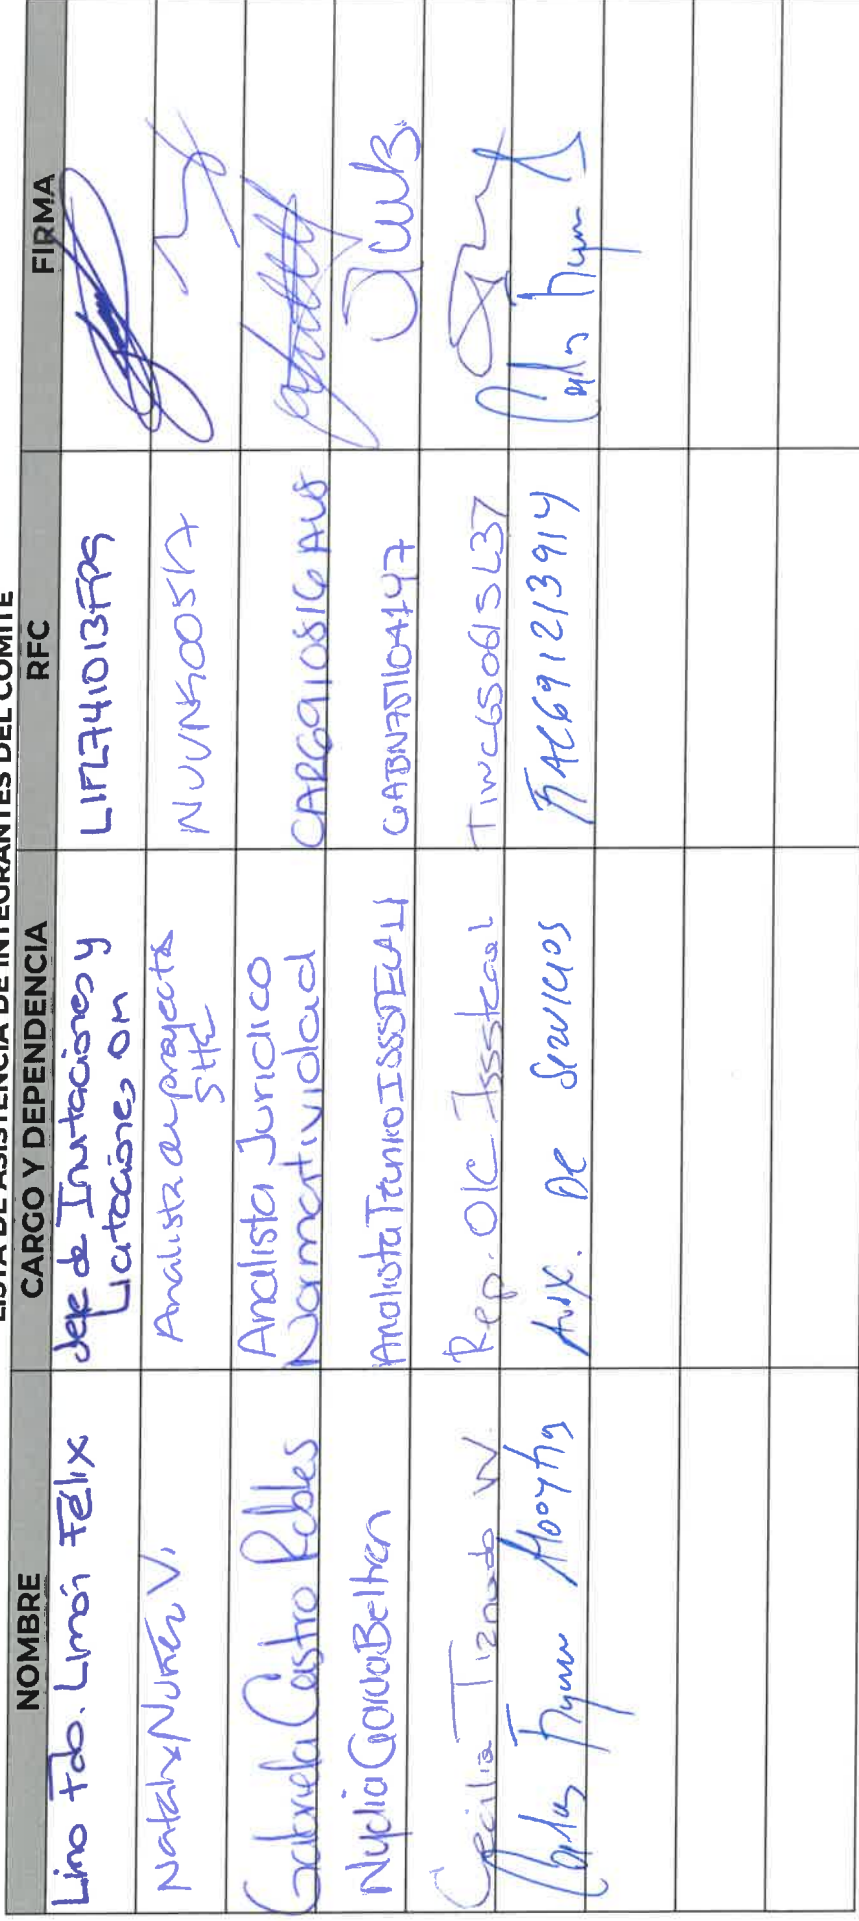 LISTA DE ASISTENCIA DE INTEGRANTES DEL COMITÉ
NOMBRE CARGO Y DEPENDENCIA RFC FIRMA
Lino Fdo. Limón Félix Jefe de Invitaciones y Licitaciones OM LIFL741013FP9
Natalia Nuñez V. Analista de proyecto SHE
Gabriela Castro Robles Analista Juridico Normatividad CARG910816AU8
Nydia Garcia Beltran Analista Tecnico ISSSTECALI GABN751104147
Cecilia Tiznado W. Rep. OIC Issstecal TIWC650615L37
Carlos Aux. De Servicios